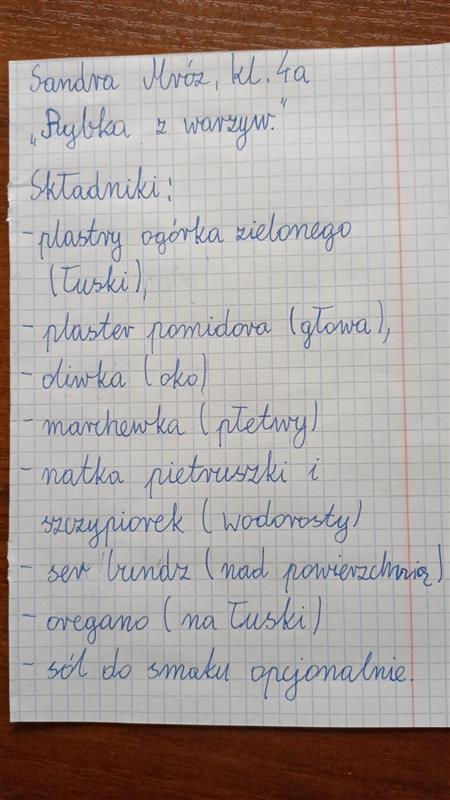 Sandra Mróz, kl. 4a
„Rybka z warzyw."
Składniki:
- plastry ogórka zielonego
(łuski),
- plaster pomidora (głowa),
- oliwka (oko)
- marchewka (płetwy)
- natka pietruszki i
szczypiorek (wodorosty)
- ser bundz (nad powierzchnią)
- oregano (na łuski)
- sól do smaku opcjonalnie.